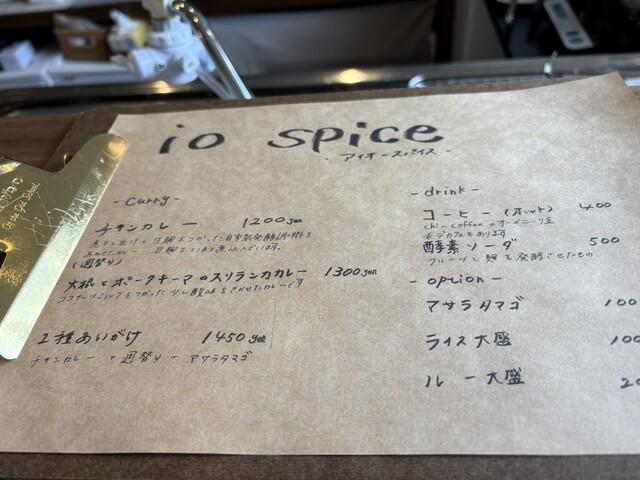 io spice
- アイオースパイス -
- curry -
チキンカレー 1200yen
(週替り)
大根とポークキーマのスリランカカレー 1300yen
ココナッツミルクをつかった少し酸味をきかせたカレーです
2種あいがけ 1450yen
チキンカレー + 週替り + アサラタマゴ
- drink -
コーヒー (ホット) 400
chi-coffeeのオーガニック豆
※デカフェもあります
酵素ソーダ 500
フルーツと麹を発酵させたもの
- option -
マサラタマゴ 100
ライス大盛 100
ルー大盛 20